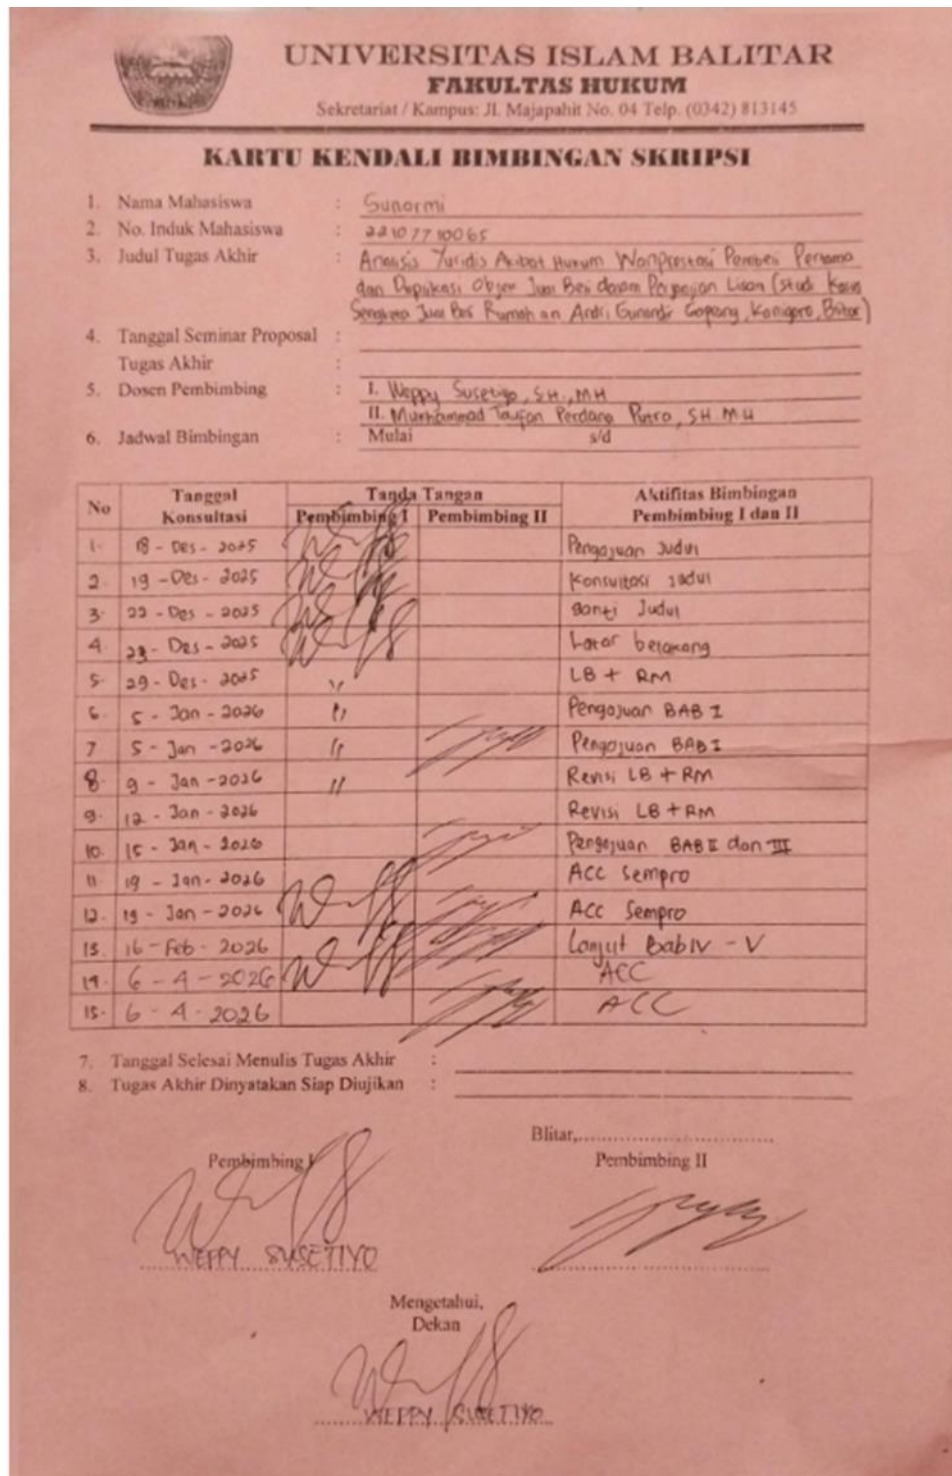 UNIVERSITAS ISLAM BALITAR
FAKULTAS HUKUM
Sekretariat / Kampus: Jl. Majapahit No. 04 Telp. (0342) 813145
KARTU KENDALI BIMBINGAN SKRIPSI
1. Nama Mahasiswa : Sunarmi
2. No. Induk Mahasiswa : 22107710065
3. Judul Tugas Akhir : Analisis Yuridis Akibat Hukum Wanprestasi Pembeli Pertama
dan Duplikasi Objek Jual Beli dalam Perjanjian Lisan (Studi Kasus
Sengketa Jual Beli Rumah an Andri Gunandir Gopang, Kanigoro, Blitar)
4. Tanggal Seminar Proposal :
Tugas Akhir :
5. Dosen Pembimbing : I. Weppy Susetiyo, SH., MH
II. Muhammad Taufan Perdana Putra, SH. MH
6. Jadwal Bimbingan : Mulai s/d
No Tanggal Konsultasi Tanda Tangan Aktifitas Bimbingan
Pembimbing I Pembimbing II Pembimbing I dan II
1. 18 - Des - 2025 Pengajuan Judul
2. 19 - Des - 2025 Konsultasi Judul
3. 22 - Des - 2025 ganti Judul
4. 23 - Des - 2025 Latar belakang
5. 29 - Des - 2025 " LB + RM
6. 5 - Jan - 2026 " Pengajuan BAB I
7 5 - Jan - 2026 " Pengajuan BAB I
8. 9 - Jan - 2026 " Revisi LB + RM
9. 12 - Jan - 2026 Revisi LB + RM
10. 15 - Jan - 2026 Pengajuan BAB II dan III
11. 19 - Jan - 2026 ACC Sempro
12. 19 - Jan - 2026 ACC Sempro
13. 16 - Feb - 2026 Lanjut Bab IV - V
14. 6 - 4 - 2026 ACC
15. 6 - 4 - 2026 ACC
7. Tanggal Selesai Menulis Tugas Akhir :
8. Tugas Akhir Dinyatakan Siap Diujikan :
Blitar,
Pembimbing I Pembimbing II
WEPPY SUSETIYO
Mengetahui,
Dekan
WEPPY SUSETIYO